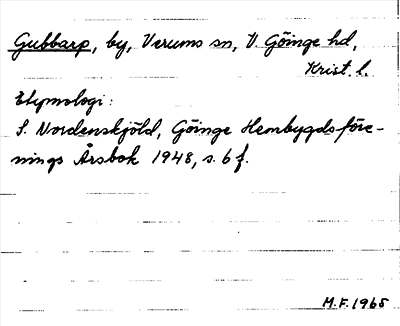 Gubbarp, by, Verums sn, V. Göinge hd,
Krist. l.
Etymologi:
S. Nordenskjöld, Göinge Hembygdsföre-
nings Årsbok 1948, s. 6 f.
M.F. 1965